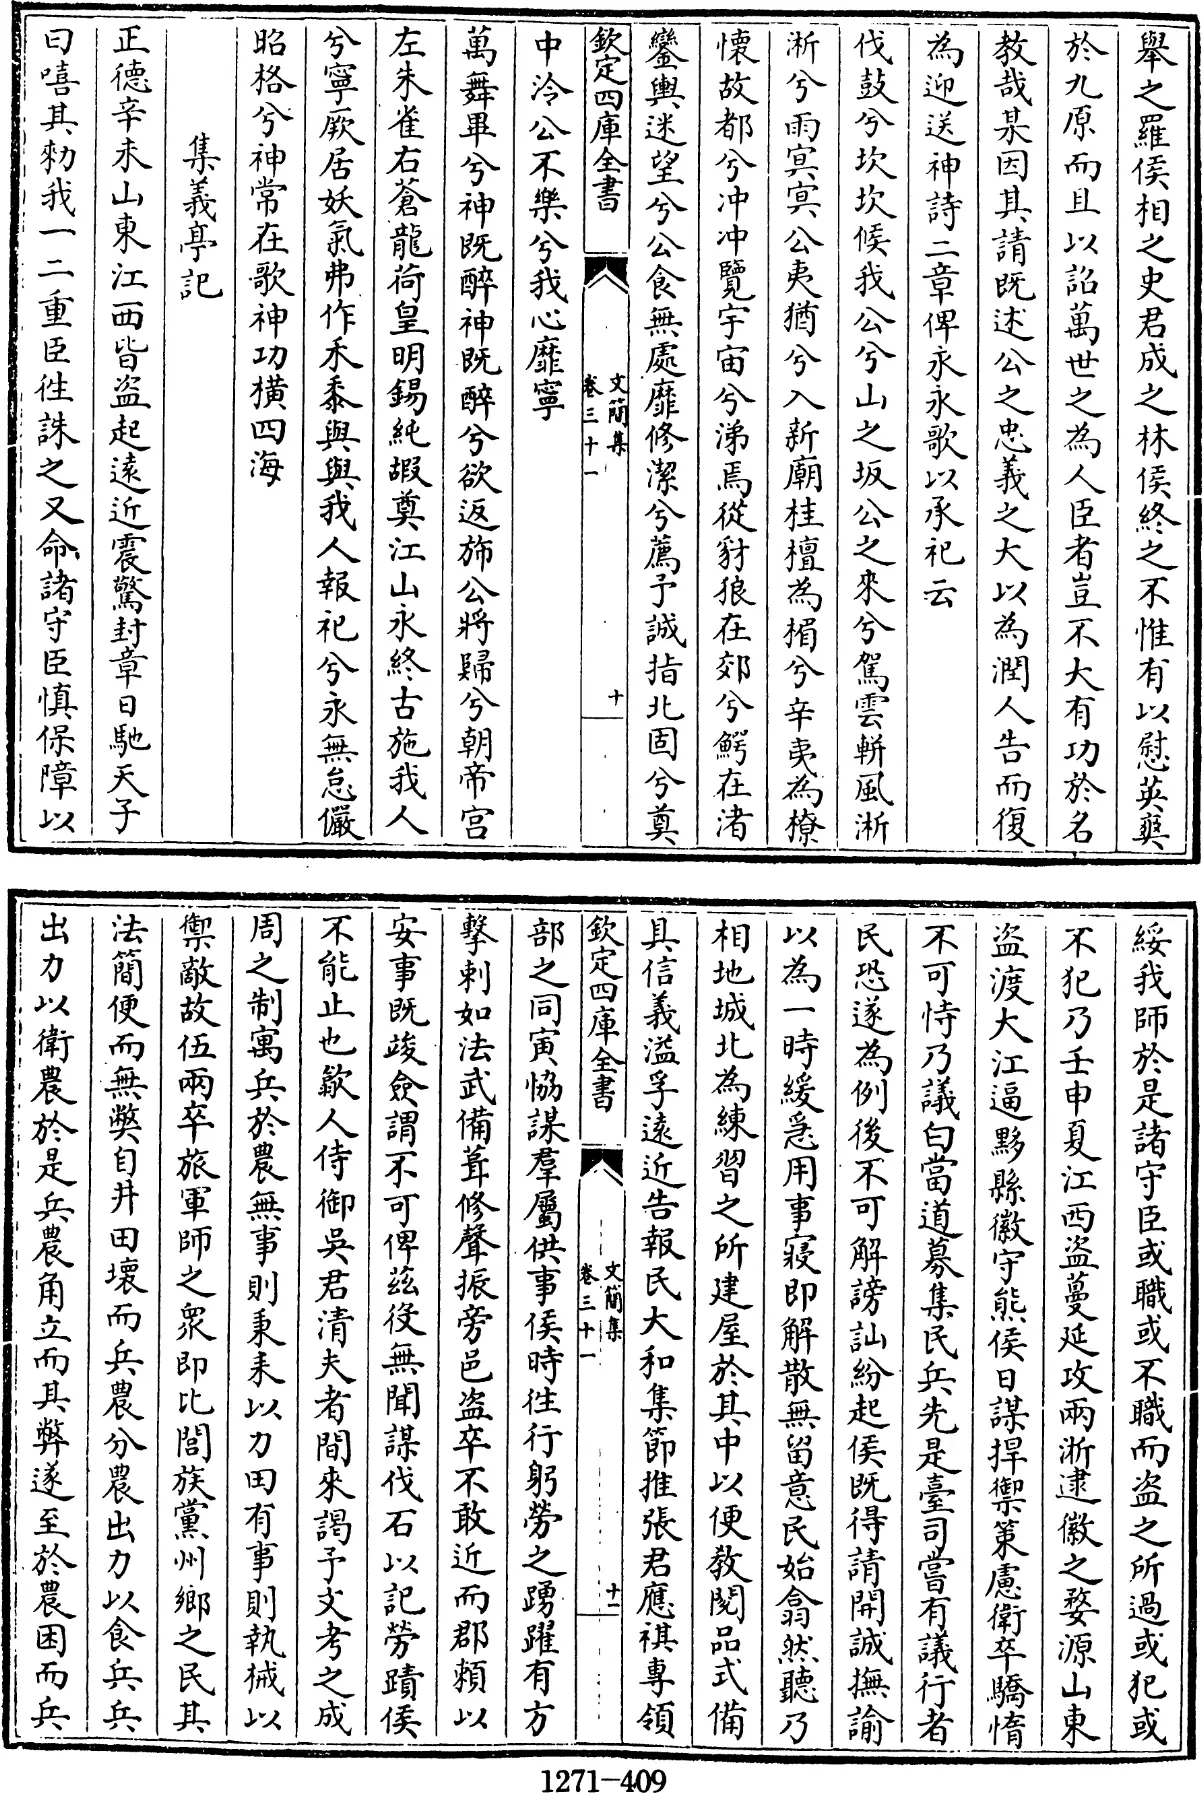 舉之羅侯相之史君成之林侯終之不惟有以慰英爽
於九原而且以詔萬世之為人臣者豈不大有功於名
教哉某因其請既述公之忠義之大以為潤人告而復
為迎送神詩二章俾永永歌以承祀云
伐鼓兮坎坎候我公兮山之坂公之來兮駕雲軿風淅
淅兮雨冥冥公夷猶兮入新廟桂檀為楣兮辛夷為橑
懷故都兮冲冲覽宇宙兮涕焉從豺狼在郊兮鰐在渚
鑾輿迷望兮公食無處靡修潔兮薦予誠指北固兮奠
欽定四庫全書
文簡集
卷三十一
十
中泠公不樂兮我心靡寧
萬舞畢兮神既醉神既醉兮欲返斾公將歸兮朝帝宫
左朱雀右蒼龍荷皇明錫純嘏奠江山永終古施我人
兮寧厥居妖氣弗作禾黍與與我人報祀兮永無怠儼
昭格兮神常在歌神功橫四海
集義亭記
正德辛未山東江西皆盗起遠近震驚封章日馳天子
曰嘻其勑我一二重臣徃誅之又命諸守臣慎保障以
綏我師於是諸守臣或職或不職而盗之所過或犯或
不犯乃壬申夏江西盗蔓延攻兩淅逮徽之婺源山東
盗渡大江逼黟縣徽守熊侯日謀捍禦策慮衛卒驕惰
不可恃乃議白當道募集民兵先是臺司嘗有議行者
民恐遂為例後不可解謗訕紛起侯既得請開誠撫諭
以為一時緩急用事寢即解散無留意民始翕然聽乃
相地城北為練習之所建屋於其中以便敎閲品式備
具信義溢孚遠近告報民大和集節推張君應祺専領
欽定四庫全書
文簡集
卷三十一
十一
部之同寅恊謀羣屬供事侯時徃行躬勞之踴躍有方
擊刺如法武備葺修聲振旁邑盗卒不敢近而郡頼以
安事既竣僉謂不可俾茲役無聞謀伐石以記勞蹟侯
不能止也歙人侍御吳君清夫者間來謁予文考之成
周之制寓兵於農無事則秉耒以力田有事則執械以
禦敵故伍兩卒旅軍師之衆即比閭族黨州鄉之民其
法簡便而無弊自井田壞而兵農分農出力以食兵兵
出力以衛農於是兵農角立而其弊遂至於農困而兵
1271-409